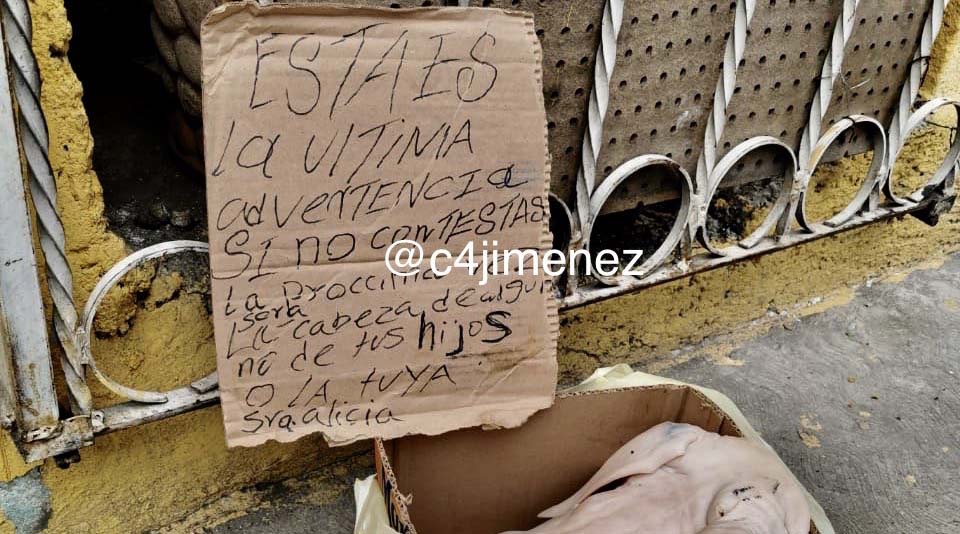 ESTA ES
la ULTIMA
adVerTENCIa
SI NO CONTESTAS
@c4jimenez
La proccima
sera
La cabeza de algu
no de tus hijos
O LA tuya
Sra. alicia